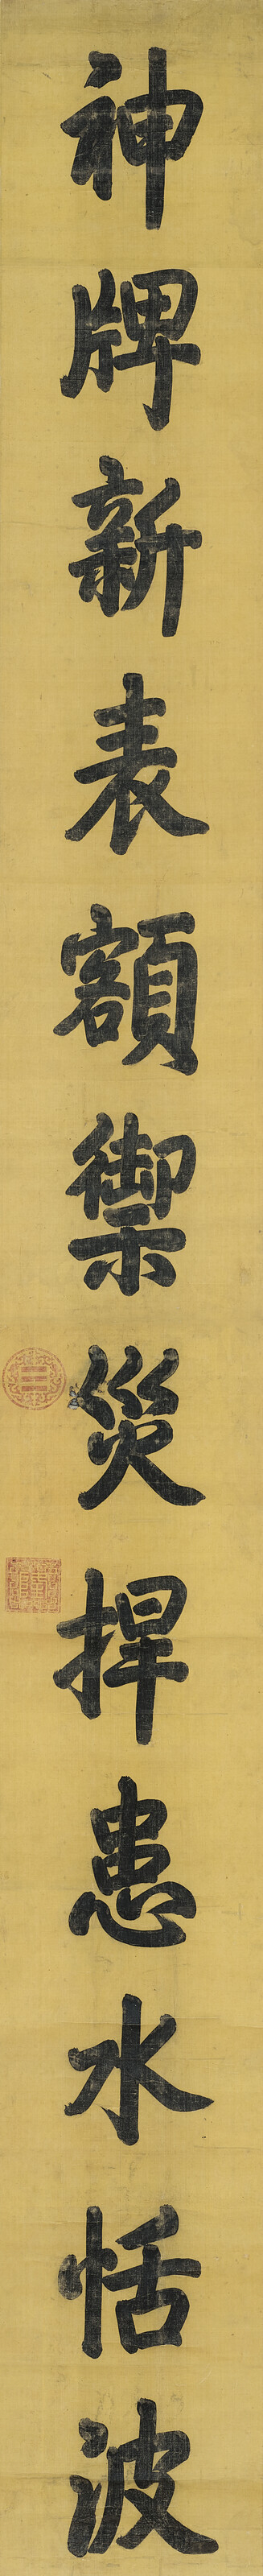 神牌新表額禦災捍患水恬波